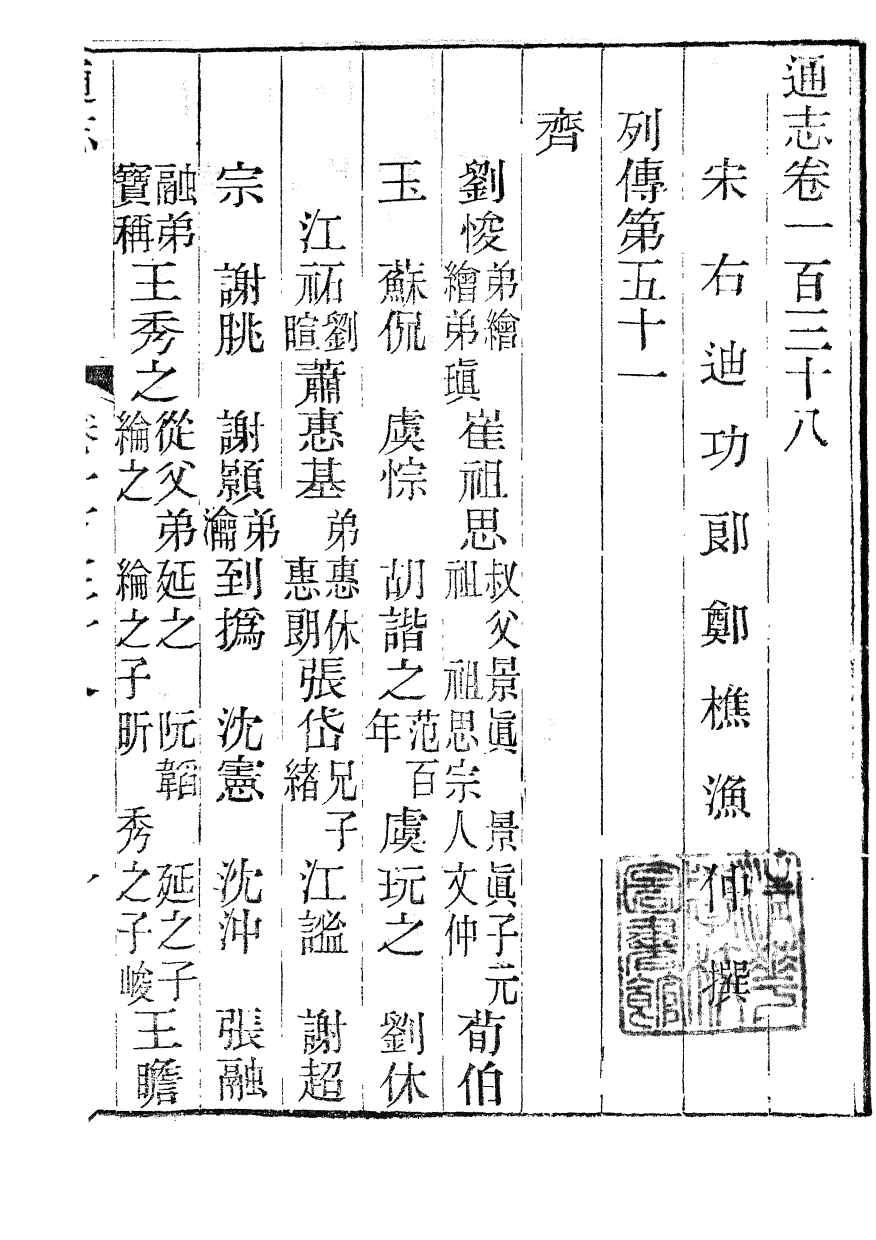 通志卷一百三十八
宋右迪功郎鄭樵漁仲撰
列傳第五十一
齊
劉悛 弟繪 繪弟瑱 崔祖思 叔父景眞 景眞子元祖 祖思宗人文仲 荀伯
玉 蘇侃 虞悰 胡諧之 范百年 虞玩之 劉休
江祏 劉暄 蕭惠基 弟惠休 惠朗 張岱 兄子緒 江謐 謝超
宗 謝朓 謝顥 弟瀹 到撝 沈憲 沈沖 張融
融弟寶稱 王秀之 從父弟延之 阮韜 延之子綸之 綸之子昕 秀之子峻 王瞻
通志